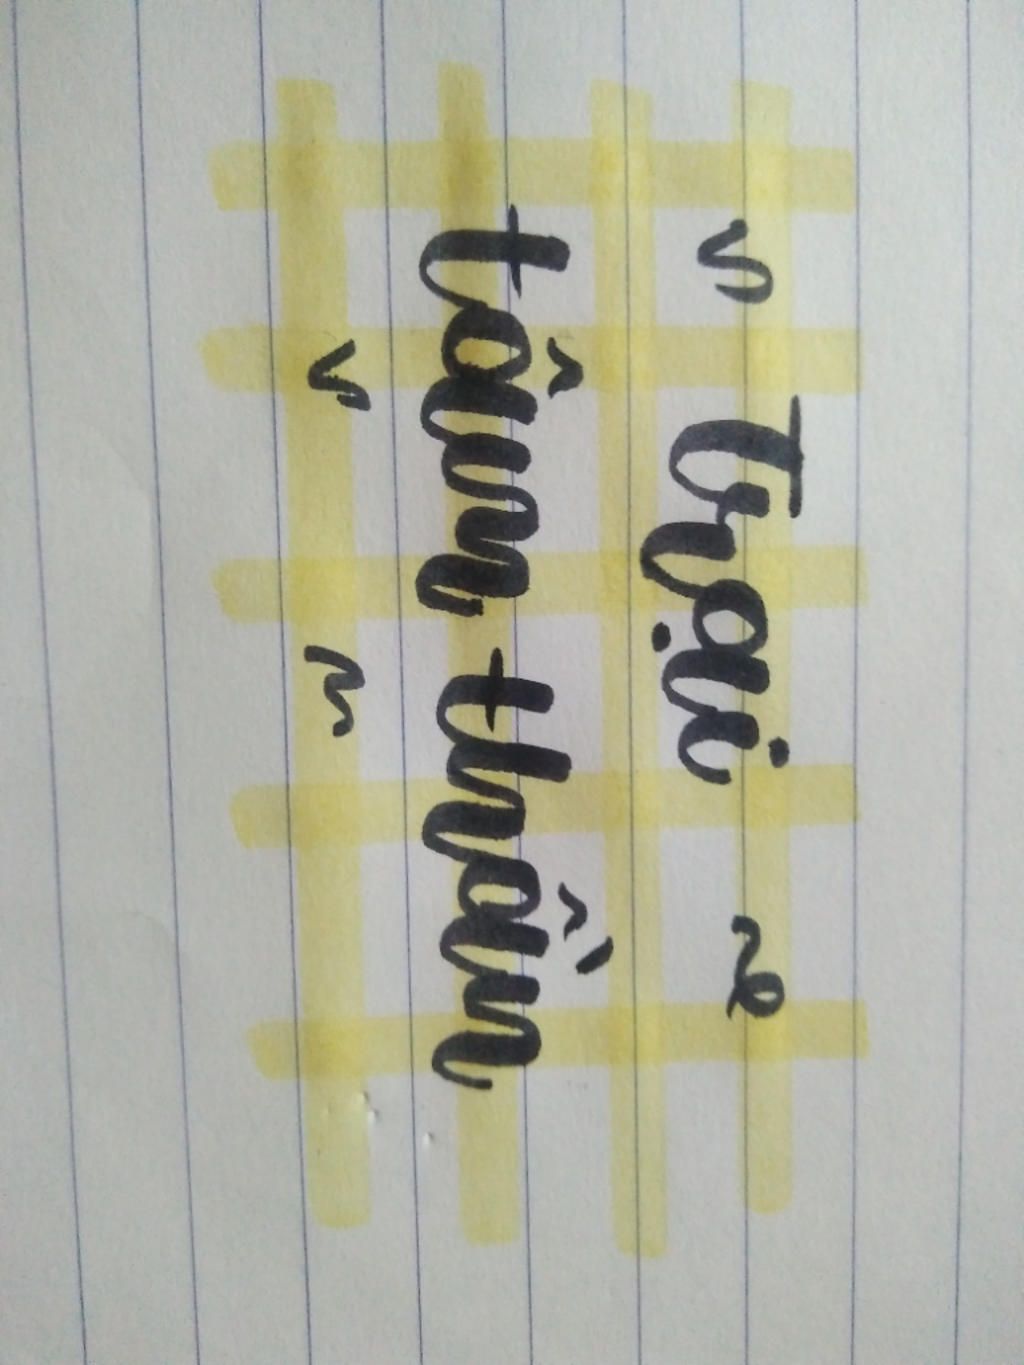 Trại
tâm thần